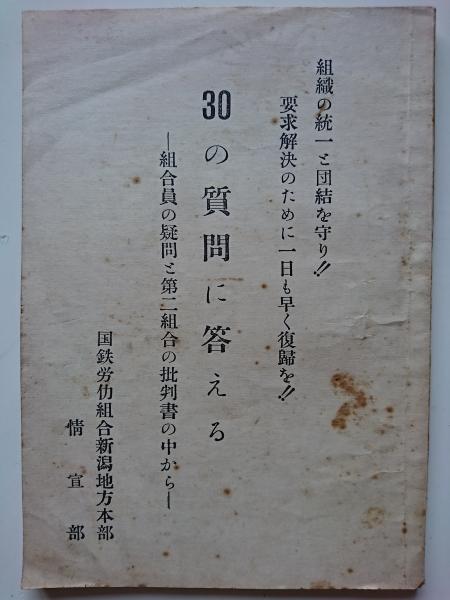 組織の統一と団結を守り!!
要求解決のために一日も早く復歸を!!
30の質問に答える
—組合員の疑問と第二組合の批判書の中から—
国鉄労仂組合新潟地方本部
情宣部